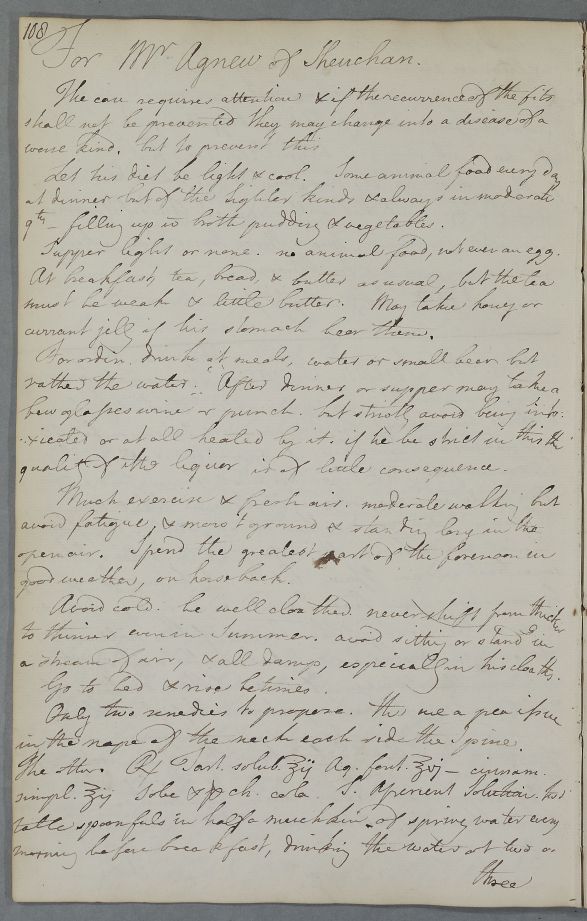 108
For Mr Agnew of Sheuchan.
The case requires attention & if the recurrence of the fits
shall not be prevented they may change into a disease of a
worse kind. but to prevent this
Let his diet be light & cool. Some animal food every day
at dinner but of the lighter kinds & always in moderate
qty – filling up wt broth pudding & vegetables.
Supper light or none. no animal food, not even an egg.
At breakfast, tea, bread & butter as usual, but the tea
must be weak & little butter. May take honey or
currant jelly if his stomach bear them.
For ordin. drink at meals, water or small beer but
rather the water. After dinner or supper may take a
few glasses wine or punch. but strictly avoid being into-
-xicated or at all heated by it. if he be strict in this the
quality of the liquor is of little consequence.
Much exercise & fresh air. moderate walking but
avoid fatigue, & moist ground & standing long in the
open air. Spend the greatest part of the forenoon in
good weather, on horseback.
Avoid cold. be well cloathed. never shift from thicker
to thinner even in Summer. avoid sitting or standg in
a stream of air, & all damp, especially in his cloaths.
Go to bed & rise betimes.
Only two remedies to propose. the one a pea issue
in the nape of the neck each side the Spine.
The other. ℞ Tart. solub. ℥ij Aq. font. ℥vj – cinnam.
simpl. ℥ij Solv & ch. cola. S. Aperient Solution. two
table spoonfuls in half a mutchkin of spring water every
morning before breakfast, drinking the water at two or
three